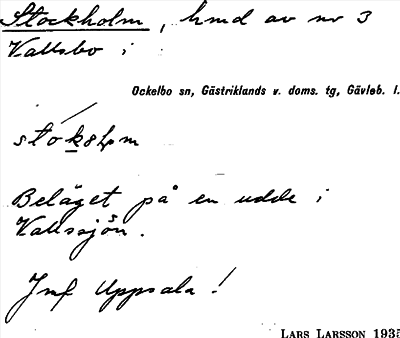 Stockholm, hmd av nr 3
Vallsbo i
Ockelbo sn, Gästriklands v. doms. tg, Gävleb. l.
Beläget på en udde i
Vallssjön.
Jmf Uppsala!
LARS LARSSON 1935